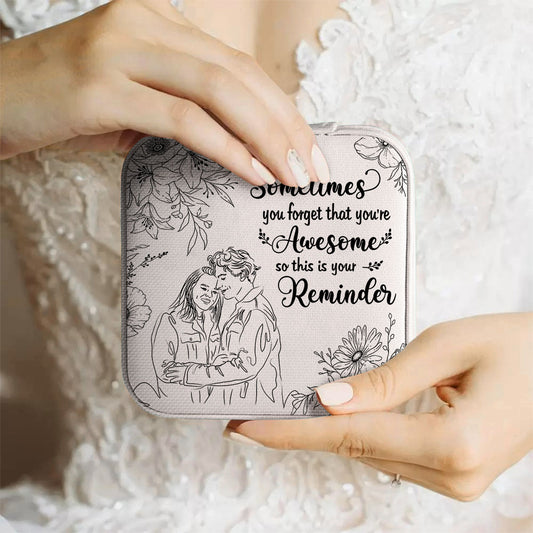 Sometimes
you forget that you're
Awesome
so this is your
Reminder